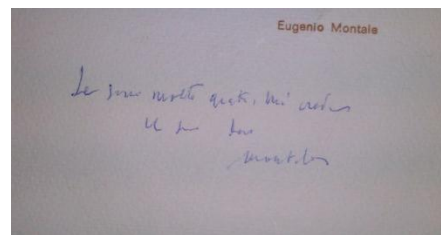 Eugenio Montale
Le sono molto grato, mi creda
il suo
Montale